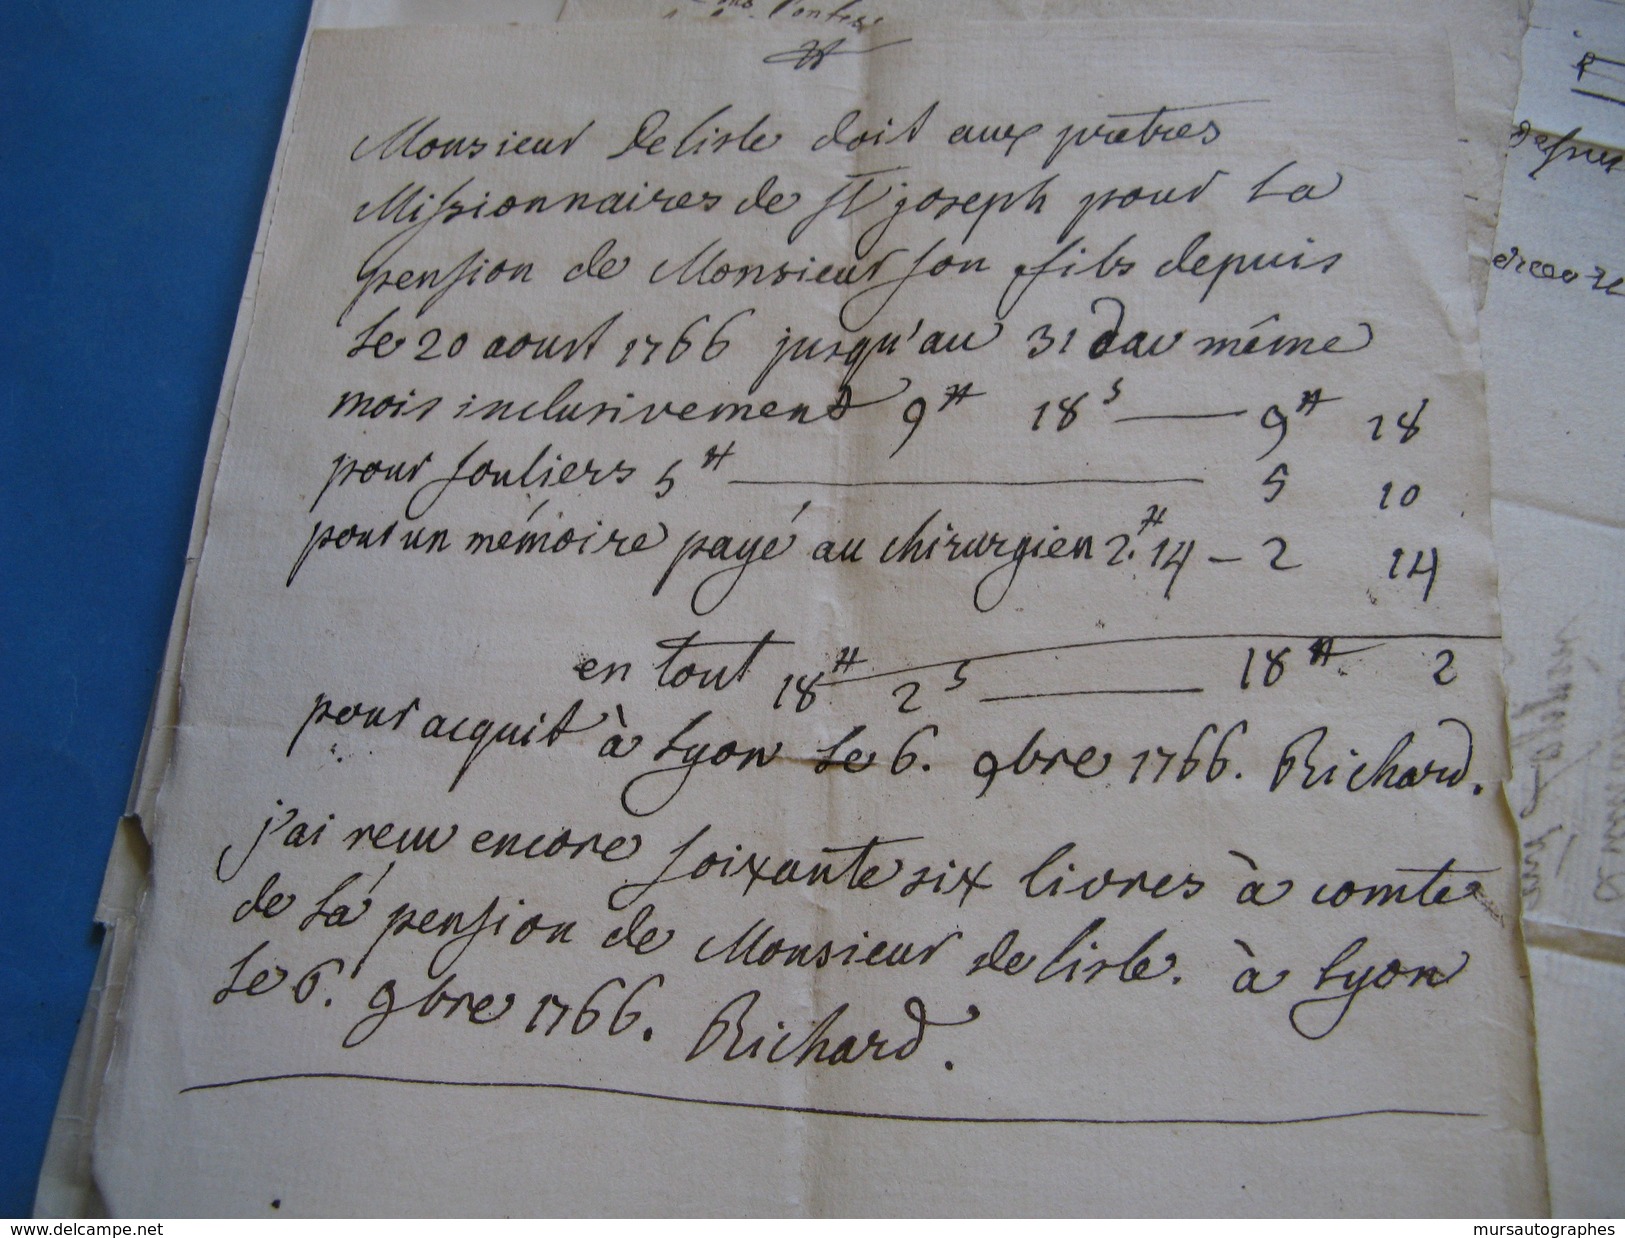 Monsieur Delisle doit aux prêtres
Missionnaires de St joseph pour la
pension de Monsieur son fils depuis
le 20 aoust 1766 jusqu'au 31 dau même
mois inclusivement 9# 18s — 9# 18
pour souliers 5# — 5 10
pour un mémoire payé au chirurgien 2.# 14 — 2 14
en tout 18# 2s — 18# 2
pour acquit à Lyon le 6. 9bre 1766. Richard.
j'ai reçu encore soixante six livres à comte
de la pension de Monsieur de lisle. à Lyon
le 6. 9bre 1766. Richard.
www.delcampe.net
mursautographes